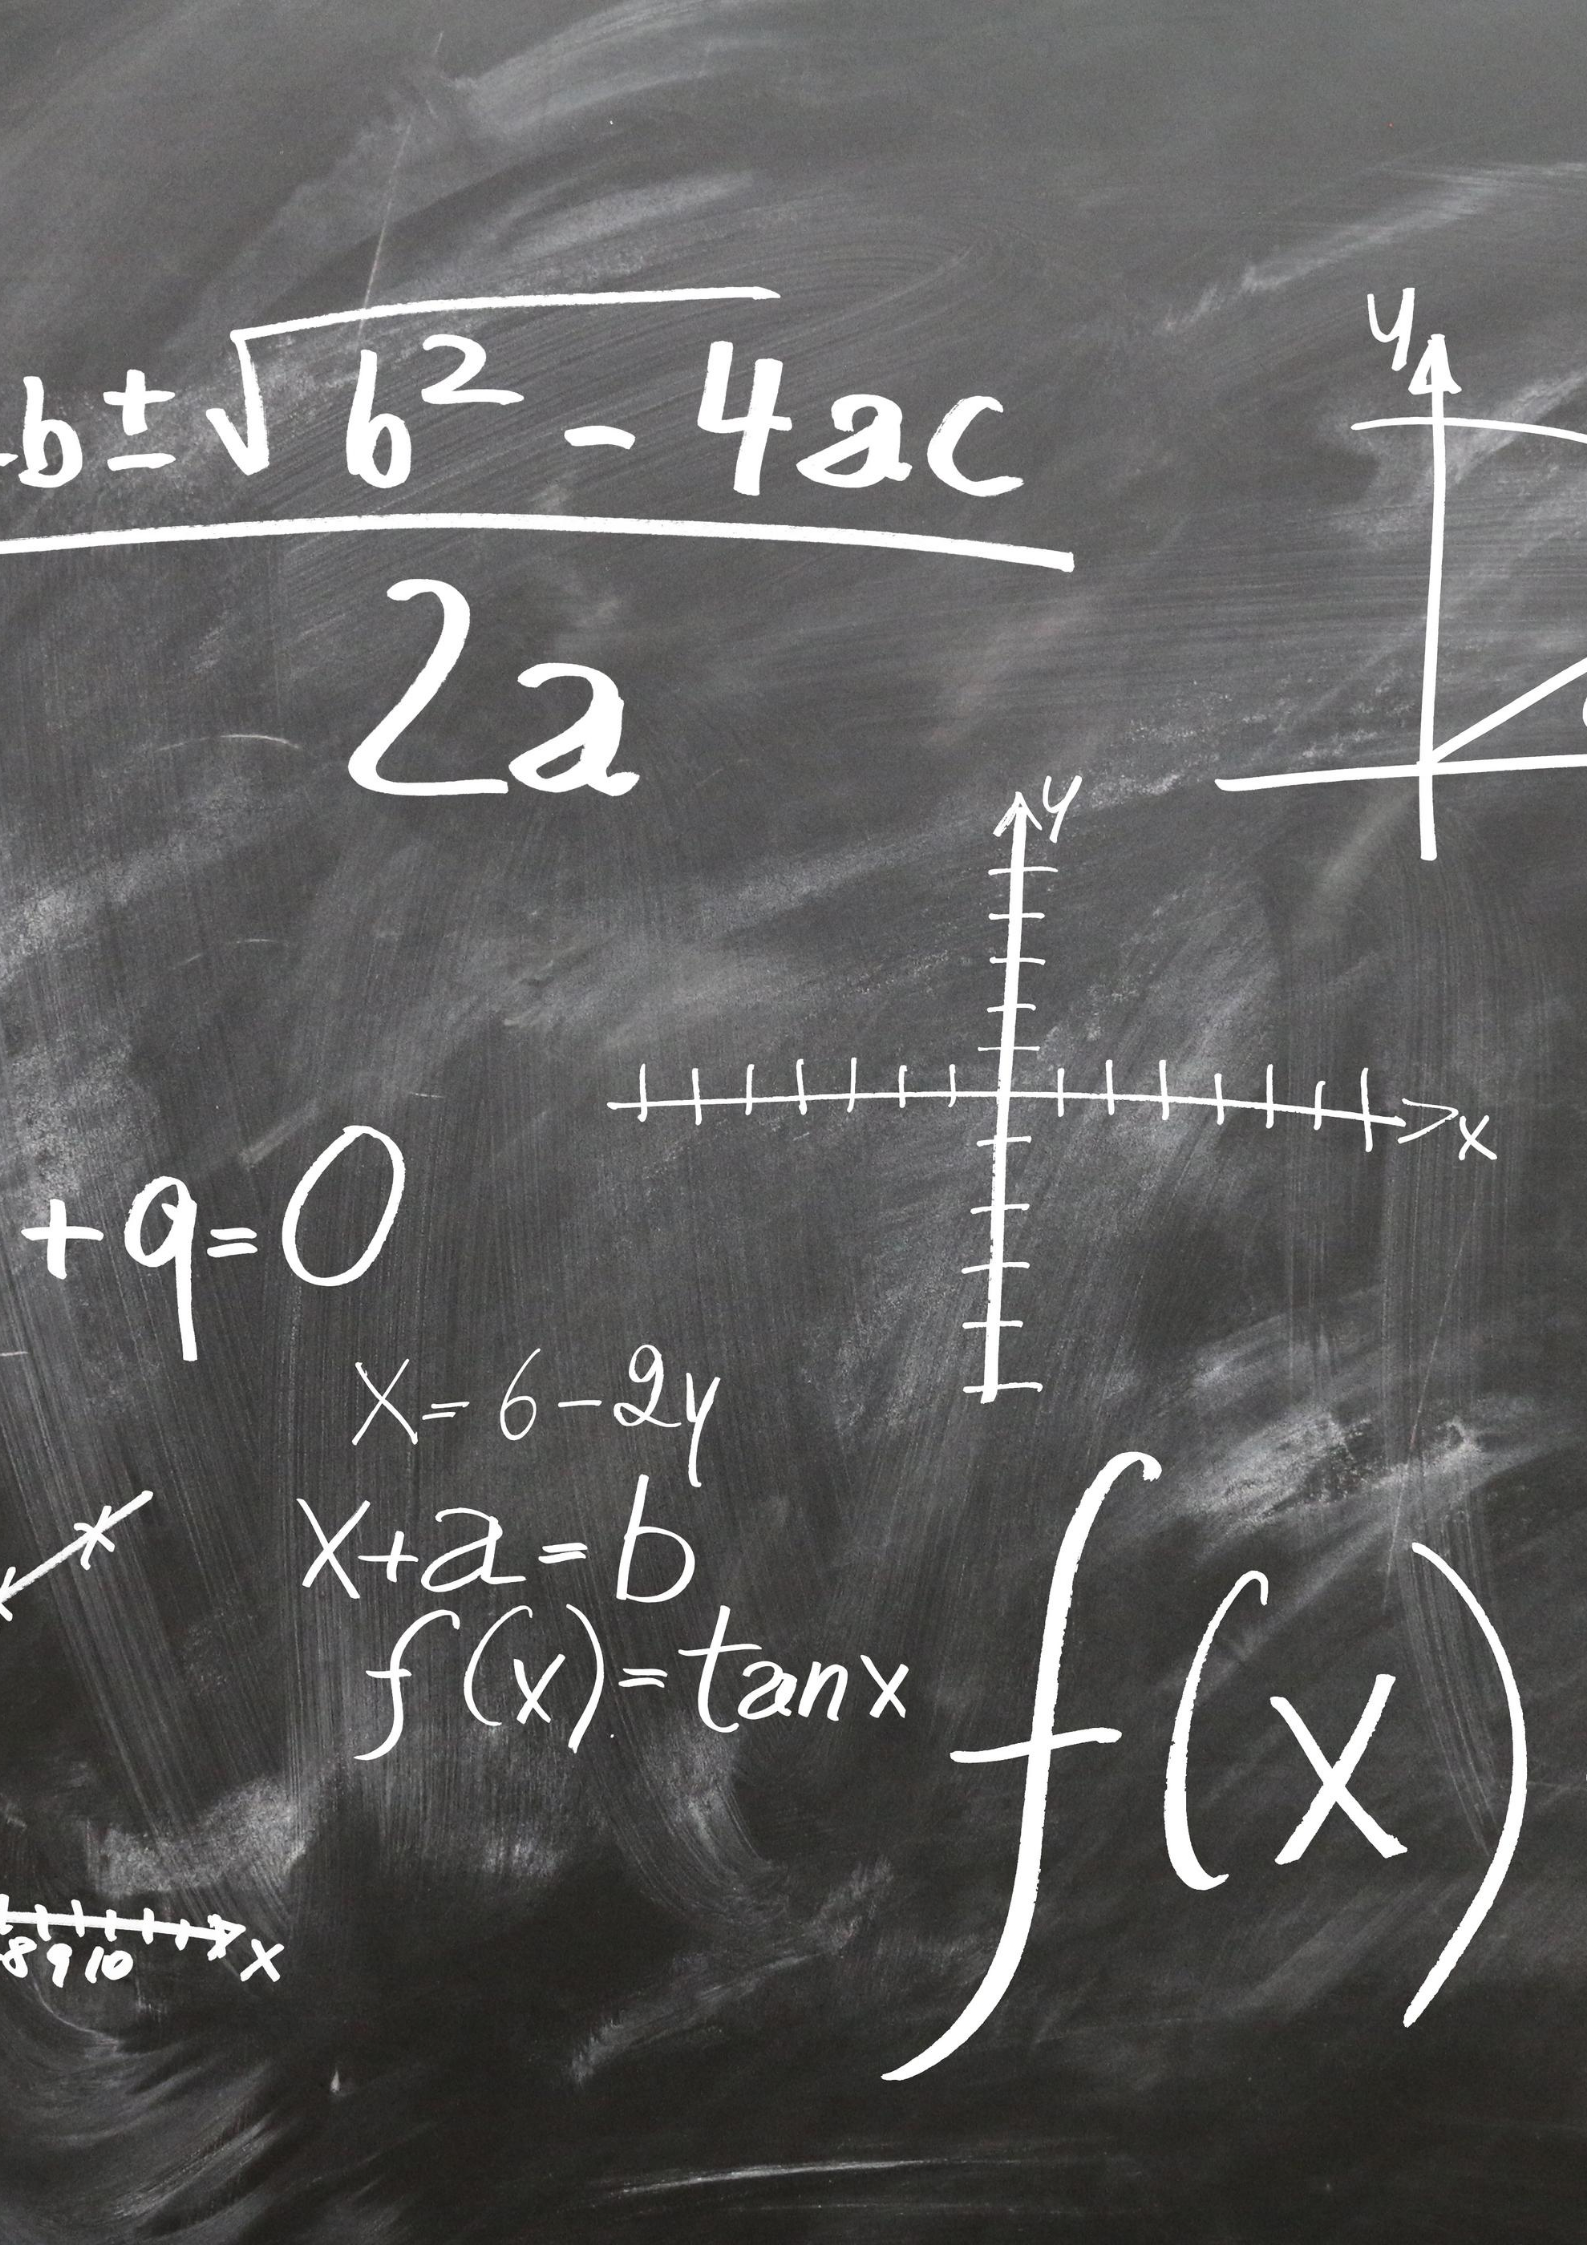 -b±√b² - 4ac
2a
y
y
x
+q=0
x=6-2y
x+a=b
f(x)=tanx
f(x)
x
8 9 10
x